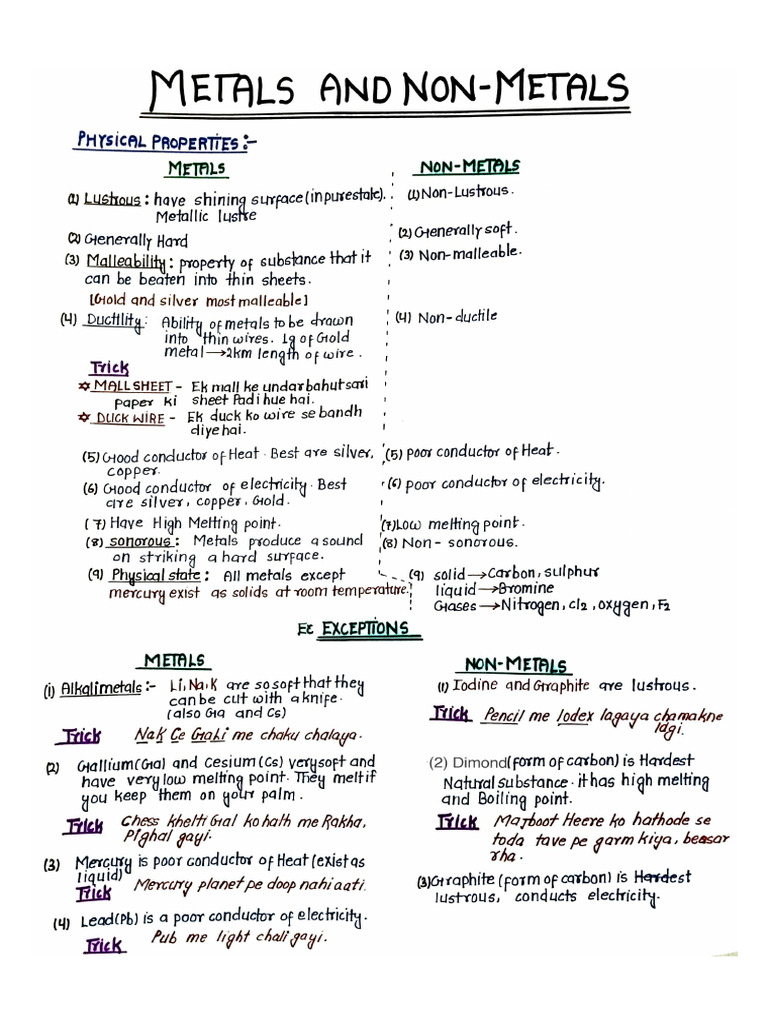 METALS AND NON-METALS
PHYSICAL PROPERTIES:-
METALS
(1) Lustrous: have shining surface (in pure state).
Metallic lustre
(2) Generally Hard
(3) Malleability: property of substance that it
can be beaten into thin sheets.
[Gold and silver most malleable]
(4) Ductility: Ability of metals to be drawn
into thin wires. 1g of Gold
metal → 2km length of wire.
Trick
✡ MALL SHEET - Ek mall ke undar bahut sari
paper ki sheet Padi hue hai.
✡ DUCK WIRE - Ek duck ko wire se bandh
diye hai.
(5) Good conductor of Heat. Best are silver,
copper.
(6) Good conductor of electricity. Best
are silver, copper, Gold.
(7) Have High Melting point.
(8) sonorous: Metals produce a sound
on striking a hard surface.
(9) Physical state: All metals except
mercury exist as solids at room temperature.
NON-METALS
(1) Non-Lustrous.
(2) Generally soft.
(3) Non-malleable.
(4) Non-ductile
(5) poor conductor of Heat.
(6) poor conductor of electricity.
(7) Low melting point.
(8) Non-sonorous.
(9) solid → Carbon, sulphur
liquid → Bromine
Gases → Nitrogen, cl2, oxygen, F2
EXCEPTIONS
METALS
(i) Alkali metals:- Li, Na, K are so soft that they
can be cut with a knife.
(also Ga and Cs)
Trick Nak Ce Gali me chaku chalaya.
(2) Gallium (Ga) and Cesium (Cs) very soft and
have very low melting point. They melt if
you keep them on your palm.
Trick Chess khelti Gal ko hath me Rakha,
Pighal gayi.
(3) Mercury is poor conductor of Heat (exist as
liquid)
Trick Mercury planet pe doop nahi aati.
(4) Lead (Pb) is a poor conductor of electricity.
Trick Pub me light chali gayi.
NON-METALS
(1) Iodine and Graphite are lustrous.
Trick Pencil me Iodex lagaya chamakne
lagi.
(2) Dimond (form of carbon) is Hardest
Natural substance. it has high melting
and Boiling point.
Trick Majboot Heere ko hathode se
toda tave pe garm kiya, beasar
rha.
(3) Graphite (form of carbon) is Hardest
lustrous, conducts electricity.